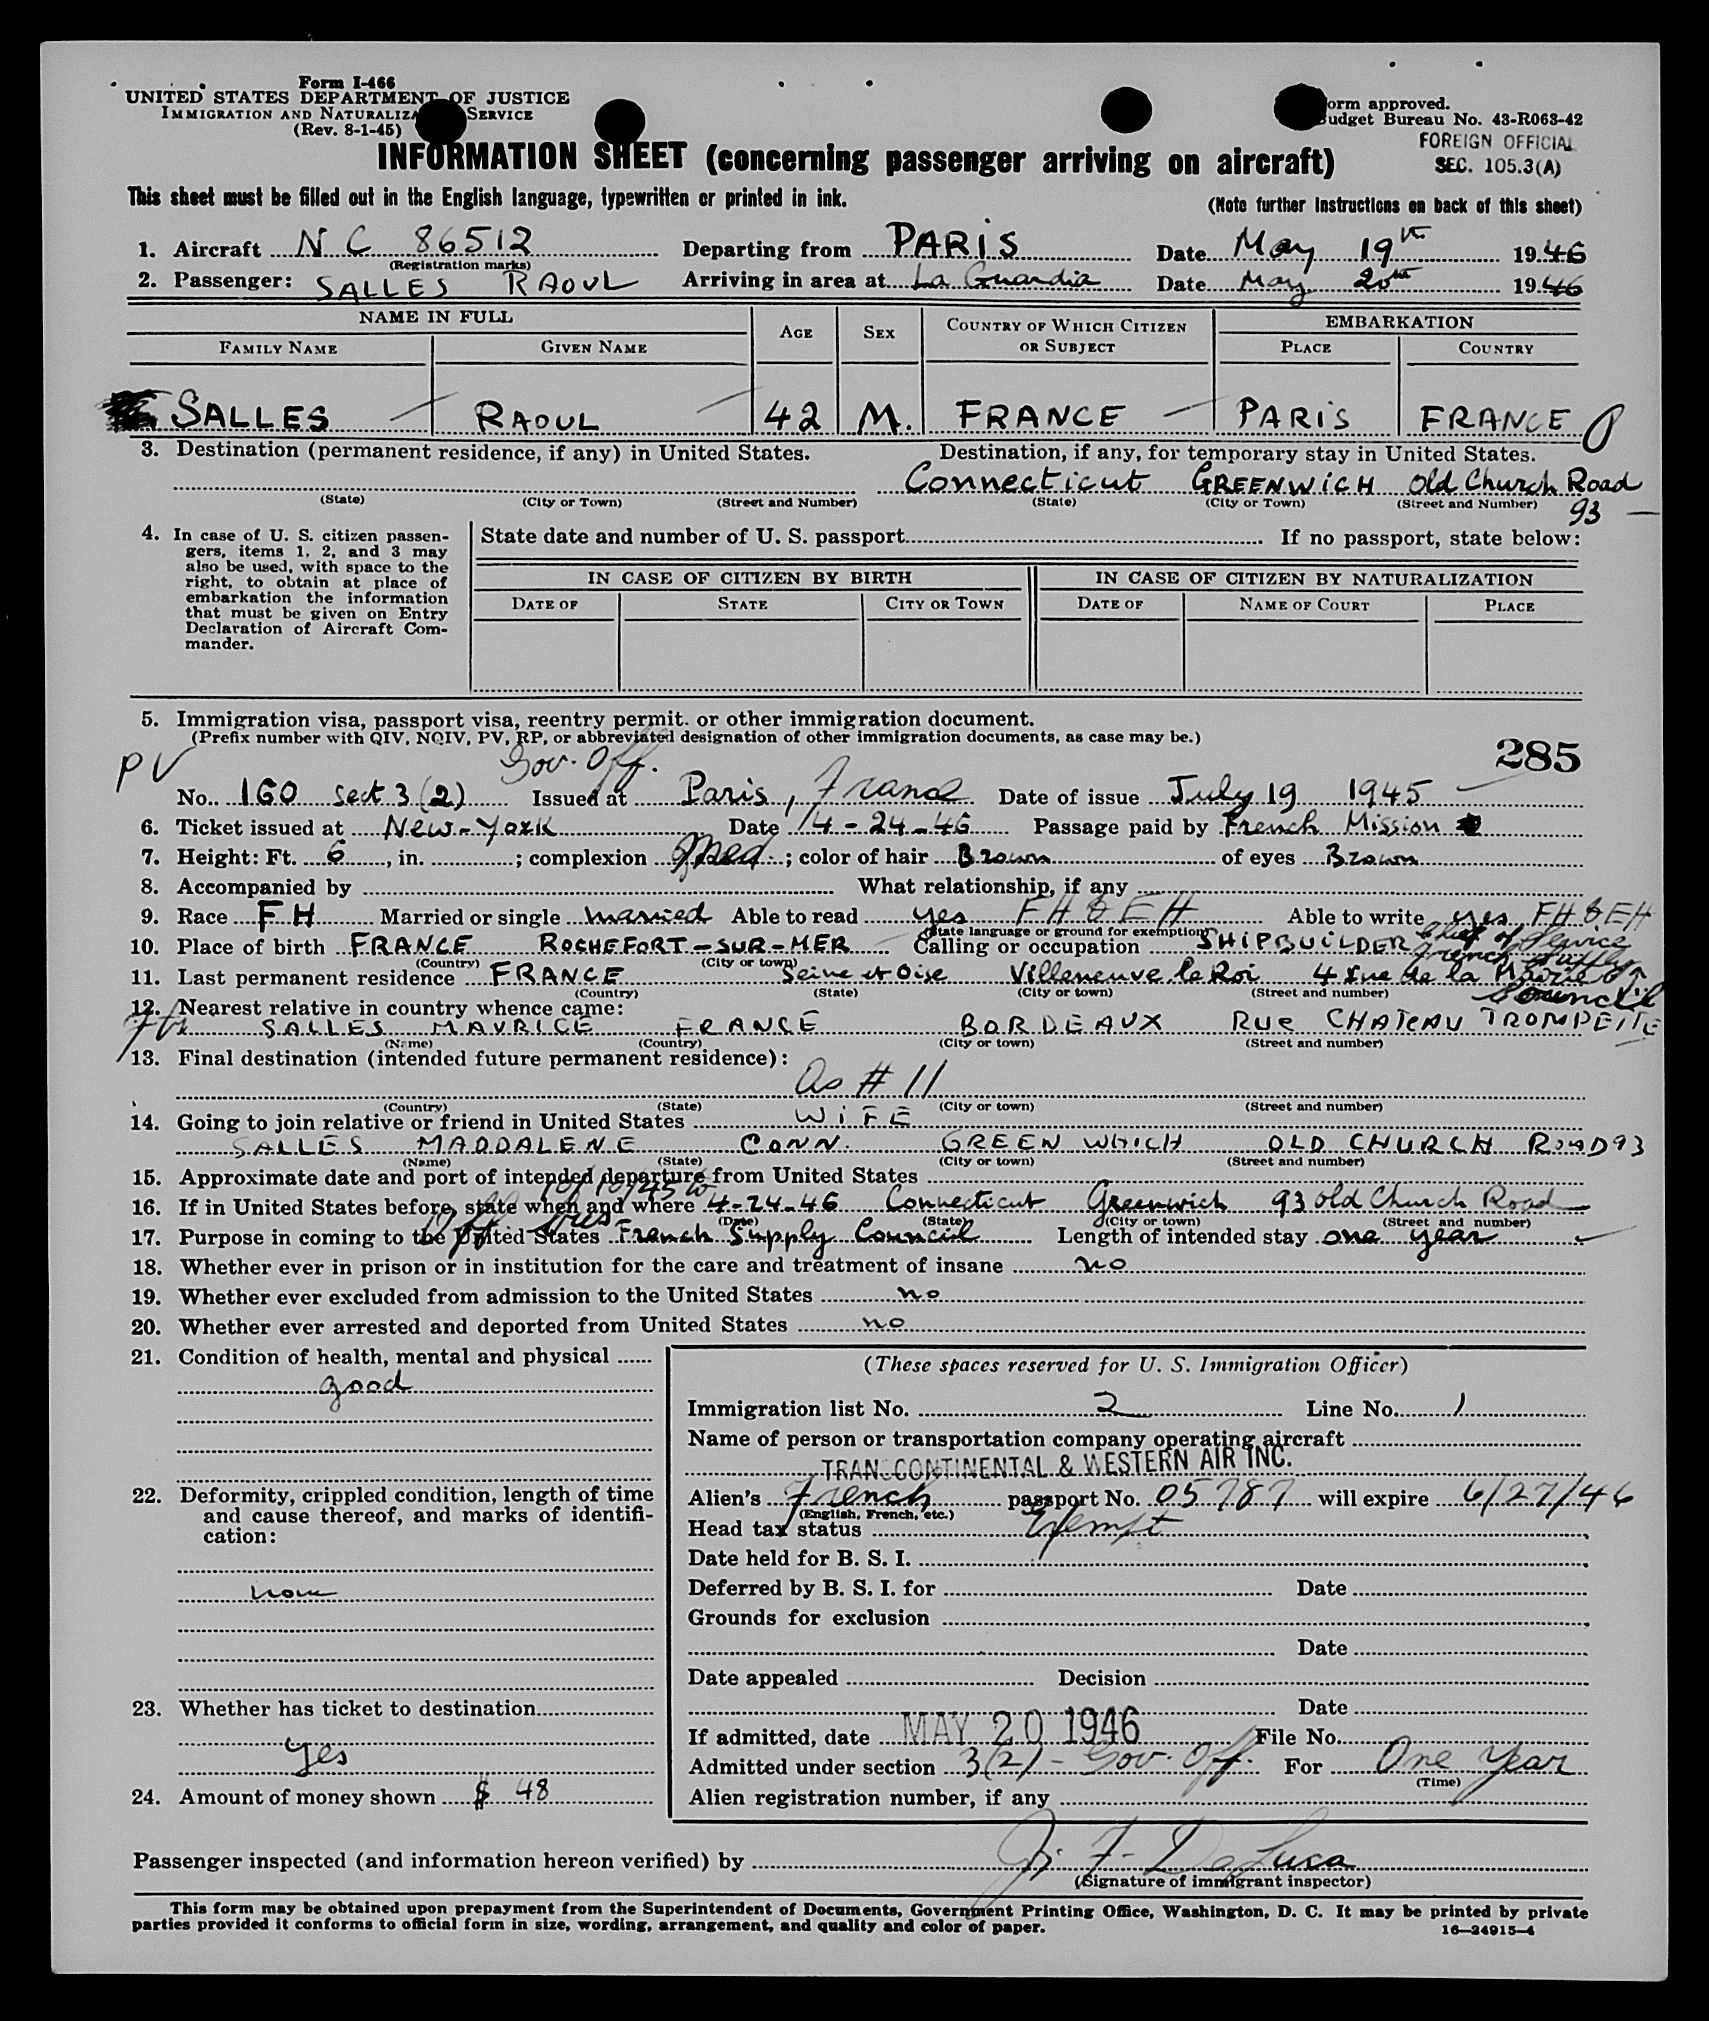 Form I-466
UNITED STATES DEPARTMENT OF JUSTICE
IMMIGRATION AND NATURALIZA SERVICE
(Rev. 8-1-45)
orm approved.
Budget Bureau No. 43-R063-42
FOREIGN OFFICIAL
SEC. 105.3(A)
INFORMATION SHEET (concerning passenger arriving on aircraft)
This sheet must be filled out in the English language, typewritten or printed in ink.
(Note further instructions on back of this sheet)
1. Aircraft NC 86512 Departing from PARIS Date May 19th 1946
(Registration marks)
2. Passenger: SALLES RAOUL Arriving in area at La Guardia Date May 20th 1946
NAME IN FULL AGE SEX COUNTRY OF WHICH CITIZEN OR SUBJECT EMBARKATION
FAMILY NAME GIVEN NAME PLACE COUNTRY
SALLES RAOUL 42 M. FRANCE PARIS FRANCE
3. Destination (permanent residence, if any) in United States. Destination, if any, for temporary stay in United States.
Connecticut GREENWICH Old Church Road
(State) (City or Town) (Street and Number) (State) (City or Town) (Street and Number) 93
4. In case of U. S. citizen passen-
gers, items 1, 2, and 3 may
also be used, with space to the
right, to obtain at place of
embarkation the information
that must be given on Entry
Declaration of Aircraft Com-
mander.
State date and number of U. S. passport If no passport, state below:
IN CASE OF CITIZEN BY BIRTH IN CASE OF CITIZEN BY NATURALIZATION
DATE OF STATE CITY OR TOWN DATE OF NAME OF COURT PLACE
5. Immigration visa, passport visa, reentry permit. or other immigration document.
(Prefix number with QIV, NQIV, PV, RP, or abbreviated designation of other immigration documents, as case may be.)
285
PV Gov. Off.
No. 160 sect 3 (2) Issued at Paris, France Date of issue July 19 1945
6. Ticket issued at New-York Date 4-24-46 Passage paid by French Mission
7. Height: Ft. 6, in. ; complexion Med. ; color of hair Brown of eyes Brown
8. Accompanied by What relationship, if any
9. Race FH Married or single married Able to read yes FH & EH Able to write yes FH & EH
(State language or ground for exemption)
10. Place of birth FRANCE ROCHEFORT-SUR-MER Calling or occupation SHIPBUILDER Chief of Service
(Country) (City or town) French Supply
11. Last permanent residence FRANCE Seine et Oise Villeneuve le Roi 4 rue de la
Council
(Country) (State) (City or town) (Street and number)
12. Nearest relative in country whence came:
SALLES MAURICE FRANCE BORDEAUX RUE CHATEAU TROMPETTE
(Name) (Country) (City or town) (Street and number)
13. Final destination (intended future permanent residence):
As # 11
(Country) (State) (City or town) (Street and number)
14. Going to join relative or friend in United States WIFE
SALLES MADDALENE CONN. GREENWHICH OLD CHURCH ROAD 93
(Name) (State) (City or town) (Street and number)
15. Approximate date and port of intended departure from United States
16. If in United States before, state when and where 4-24-46 Connecticut Greenwich 93 Old Church Road
(Date) (State) (City or town) (Street and number)
17. Purpose in coming to the United States French Supply Council Length of intended stay one year
18. Whether ever in prison or in institution for the care and treatment of insane no
19. Whether ever excluded from admission to the United States no
20. Whether ever arrested and deported from United States no
21. Condition of health, mental and physical
good
22. Deformity, crippled condition, length of time
and cause thereof, and marks of identifi-
cation:
none
23. Whether has ticket to destination
yes
24. Amount of money shown $ 48
(These spaces reserved for U. S. Immigration Officer)
Immigration list No. 2 Line No. 1
Name of person or transportation company operating aircraft
TRANSCONTINENTAL & WESTERN AIR INC.
Alien's French passport No. 05787 will expire 6/27/46
(English, French, etc.)
Head tax status Exempt
Date held for B. S. I.
Deferred by B. S. I. for Date
Grounds for exclusion
Date
Date appealed Decision
Date
If admitted, date MAY 20 1946 File No.
Admitted under section 3(2) - Gov. Off. For One Year
(Time)
Alien registration number, if any
Passenger inspected (and information hereon verified) by J. F. DeLuca
(Signature of immigrant inspector)
This form may be obtained upon prepayment from the Superintendent of Documents, Government Printing Office, Washington, D. C. It may be printed by private
parties provided it conforms to official form in size, wording, arrangement, and quality and color of paper.
16—24915-4